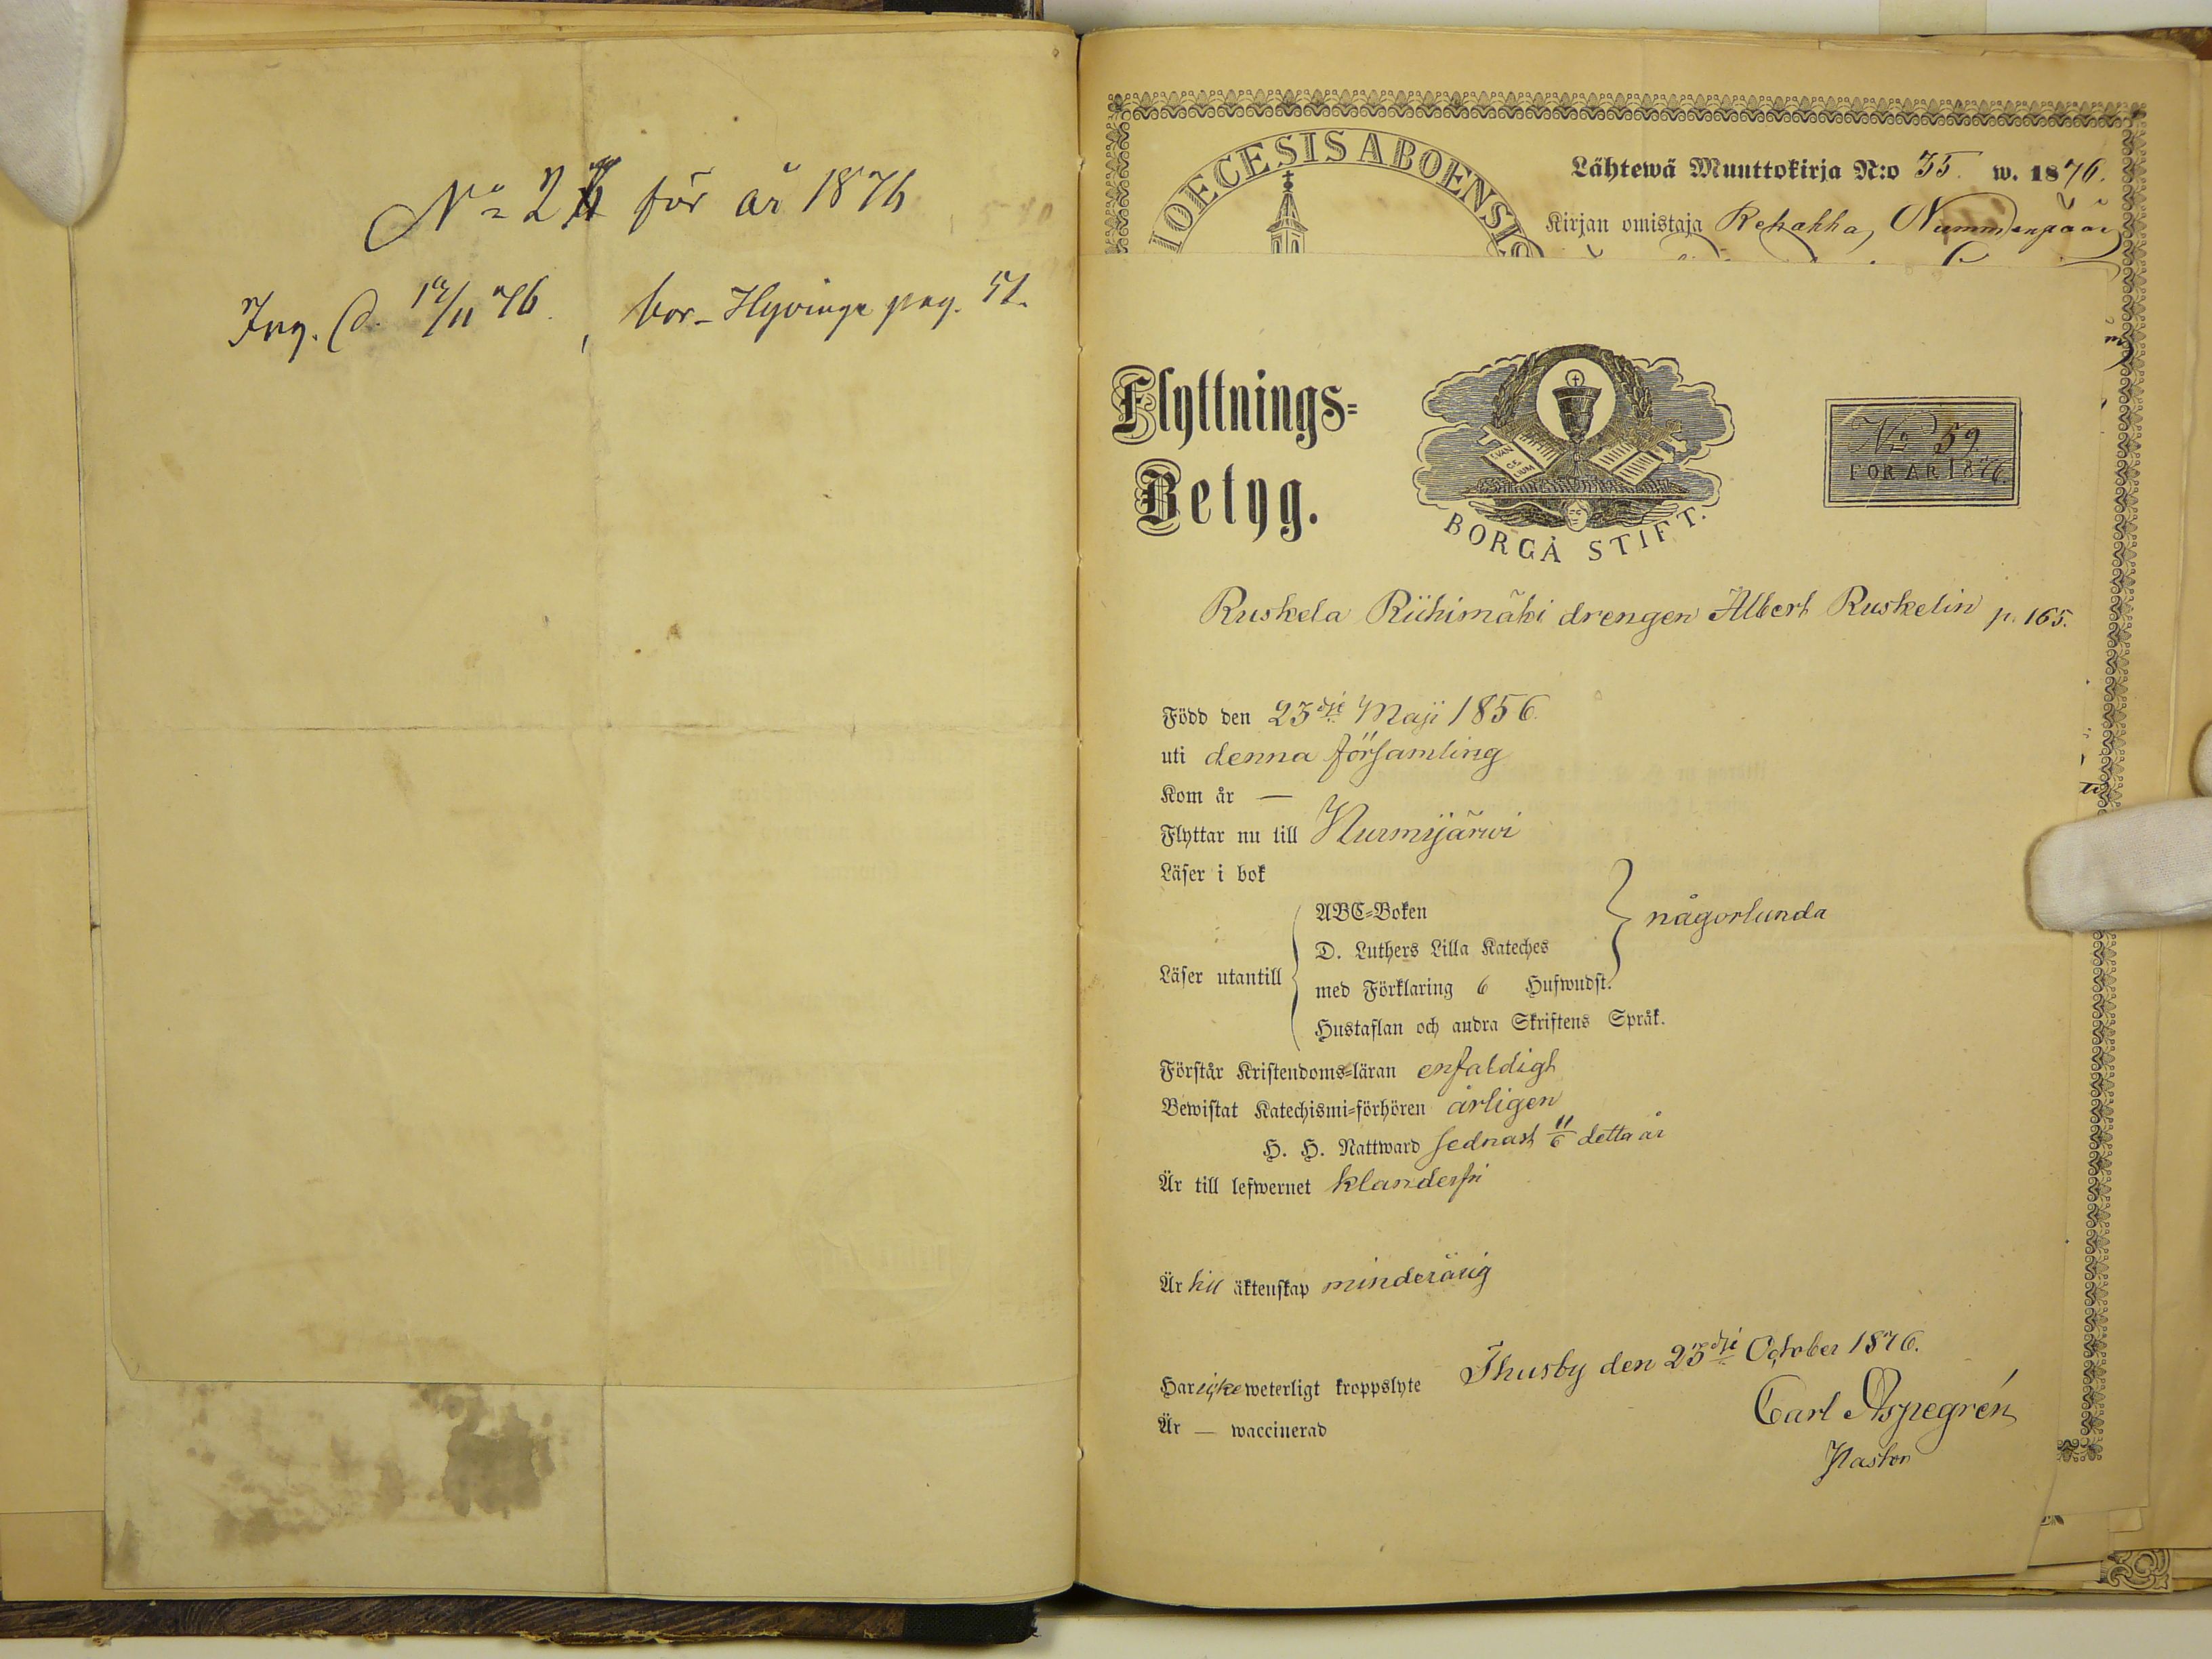 för år 1876
Ing. d. 12/11 76, bor Hyvinge pag. 51.
DIOECESIS ABOENSIS
Lähtewä Muuttokirja N:o 35. w. 1876.
Kirjan omistaja Rekahha, Nummenpään
Flyttnings-
Betyg.
EVAN GE LIUM
BORGÅ STIFT.
No 59.
FÖR ÅR 1876.
Ruskela Riihimäki drengen Albert Ruskelin p. 165.
Född den 23dje Maji 1856.
uti denna församling
Kom år —
Flyttar nu till Nurmijärwi
Läser i bok
ABC-Boken
D. Luthers Lilla Kateches
någorlunda
Läser utantill
med Förklaring 6 Hufwudst.
Hustaflan och andra Skriftens Språk.
Förstår Kristendoms-läran enfaldigt
Bewistat Katechismi-förhören årligen
H. H. Nattward sednast 11/6 detta år
Är till lefwernet klanderfri
Är till äktenskap minderårig
Thusby den 23dje October 1876.
Har icke weterligt kroppslyte
Carl Aspegrén
Är — waccinerad
Pastor